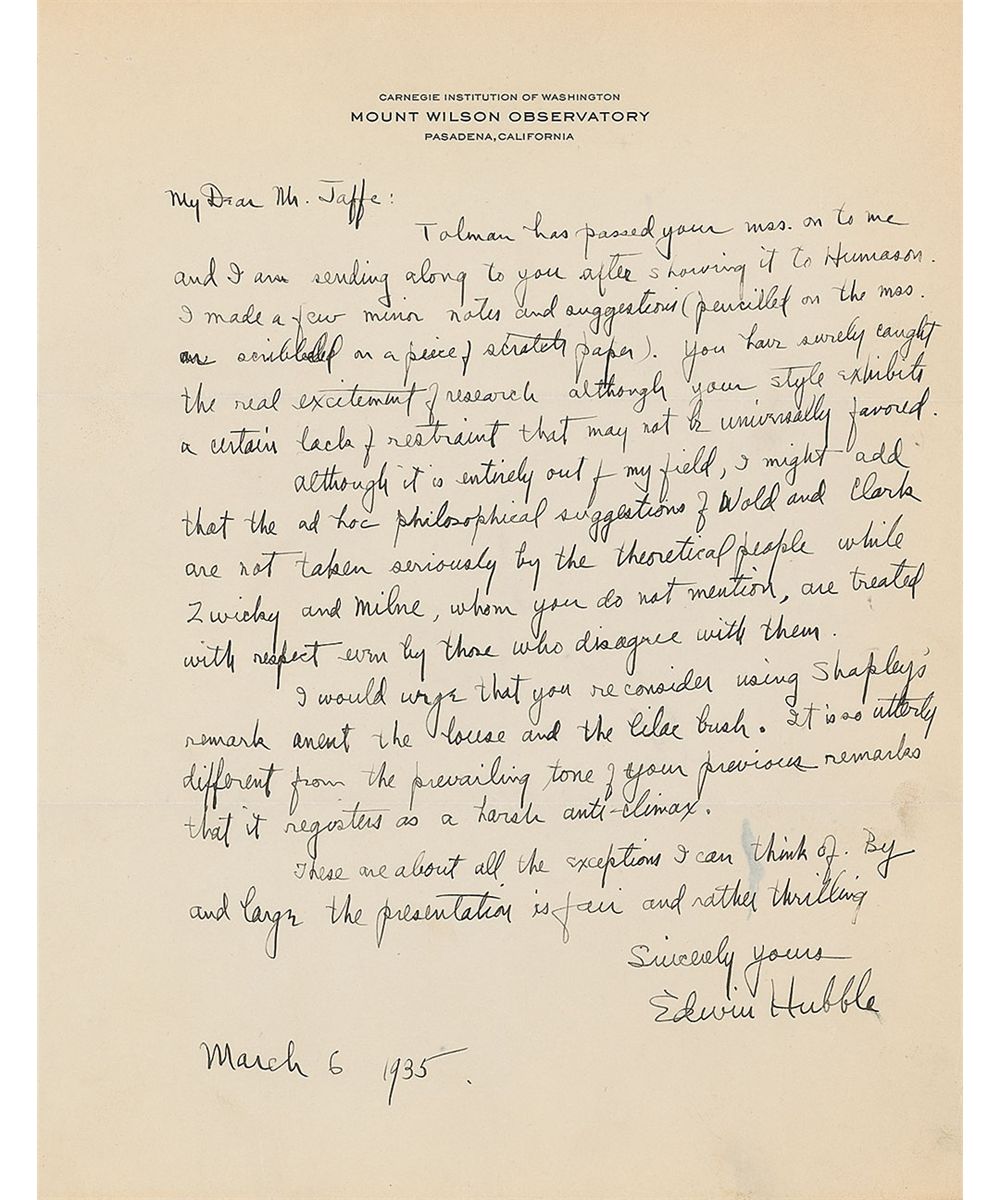 CARNEGIE INSTITUTION OF WASHINGTON
MOUNT WILSON OBSERVATORY
PASADENA, CALIFORNIA
My Dear Mr. Jaffe:
Tolman has passed your mss. on to me
and I am sending along to you after showing it to Humason.
I made a few minor notes and suggestions (pencilled on the mss.
scribbled on a piece of scratch paper). You have surely caught
the real excitement of research although your style exhibits
a certain lack of restraint that may not be universally favored.
Although it is entirely out of my field, I might add
that the ad hoc philosophical suggestions of Wold and Clark
are not taken seriously by the theoretical people while
Zwicky and Milne, whom you do not mention, are treated
with respect even by those who disagree with them.
I would urge that you reconsider using Shapley's
remark anent the louse and the lilac bush. It is so utterly
different from the prevailing tone of your previous remarks
that it registers as a harsh anti-climax.
These are about all the exceptions I can think of. By
and large the presentation is fair and rather thrilling
Sincerely yours
Edwin Hubble
March 6 1935.